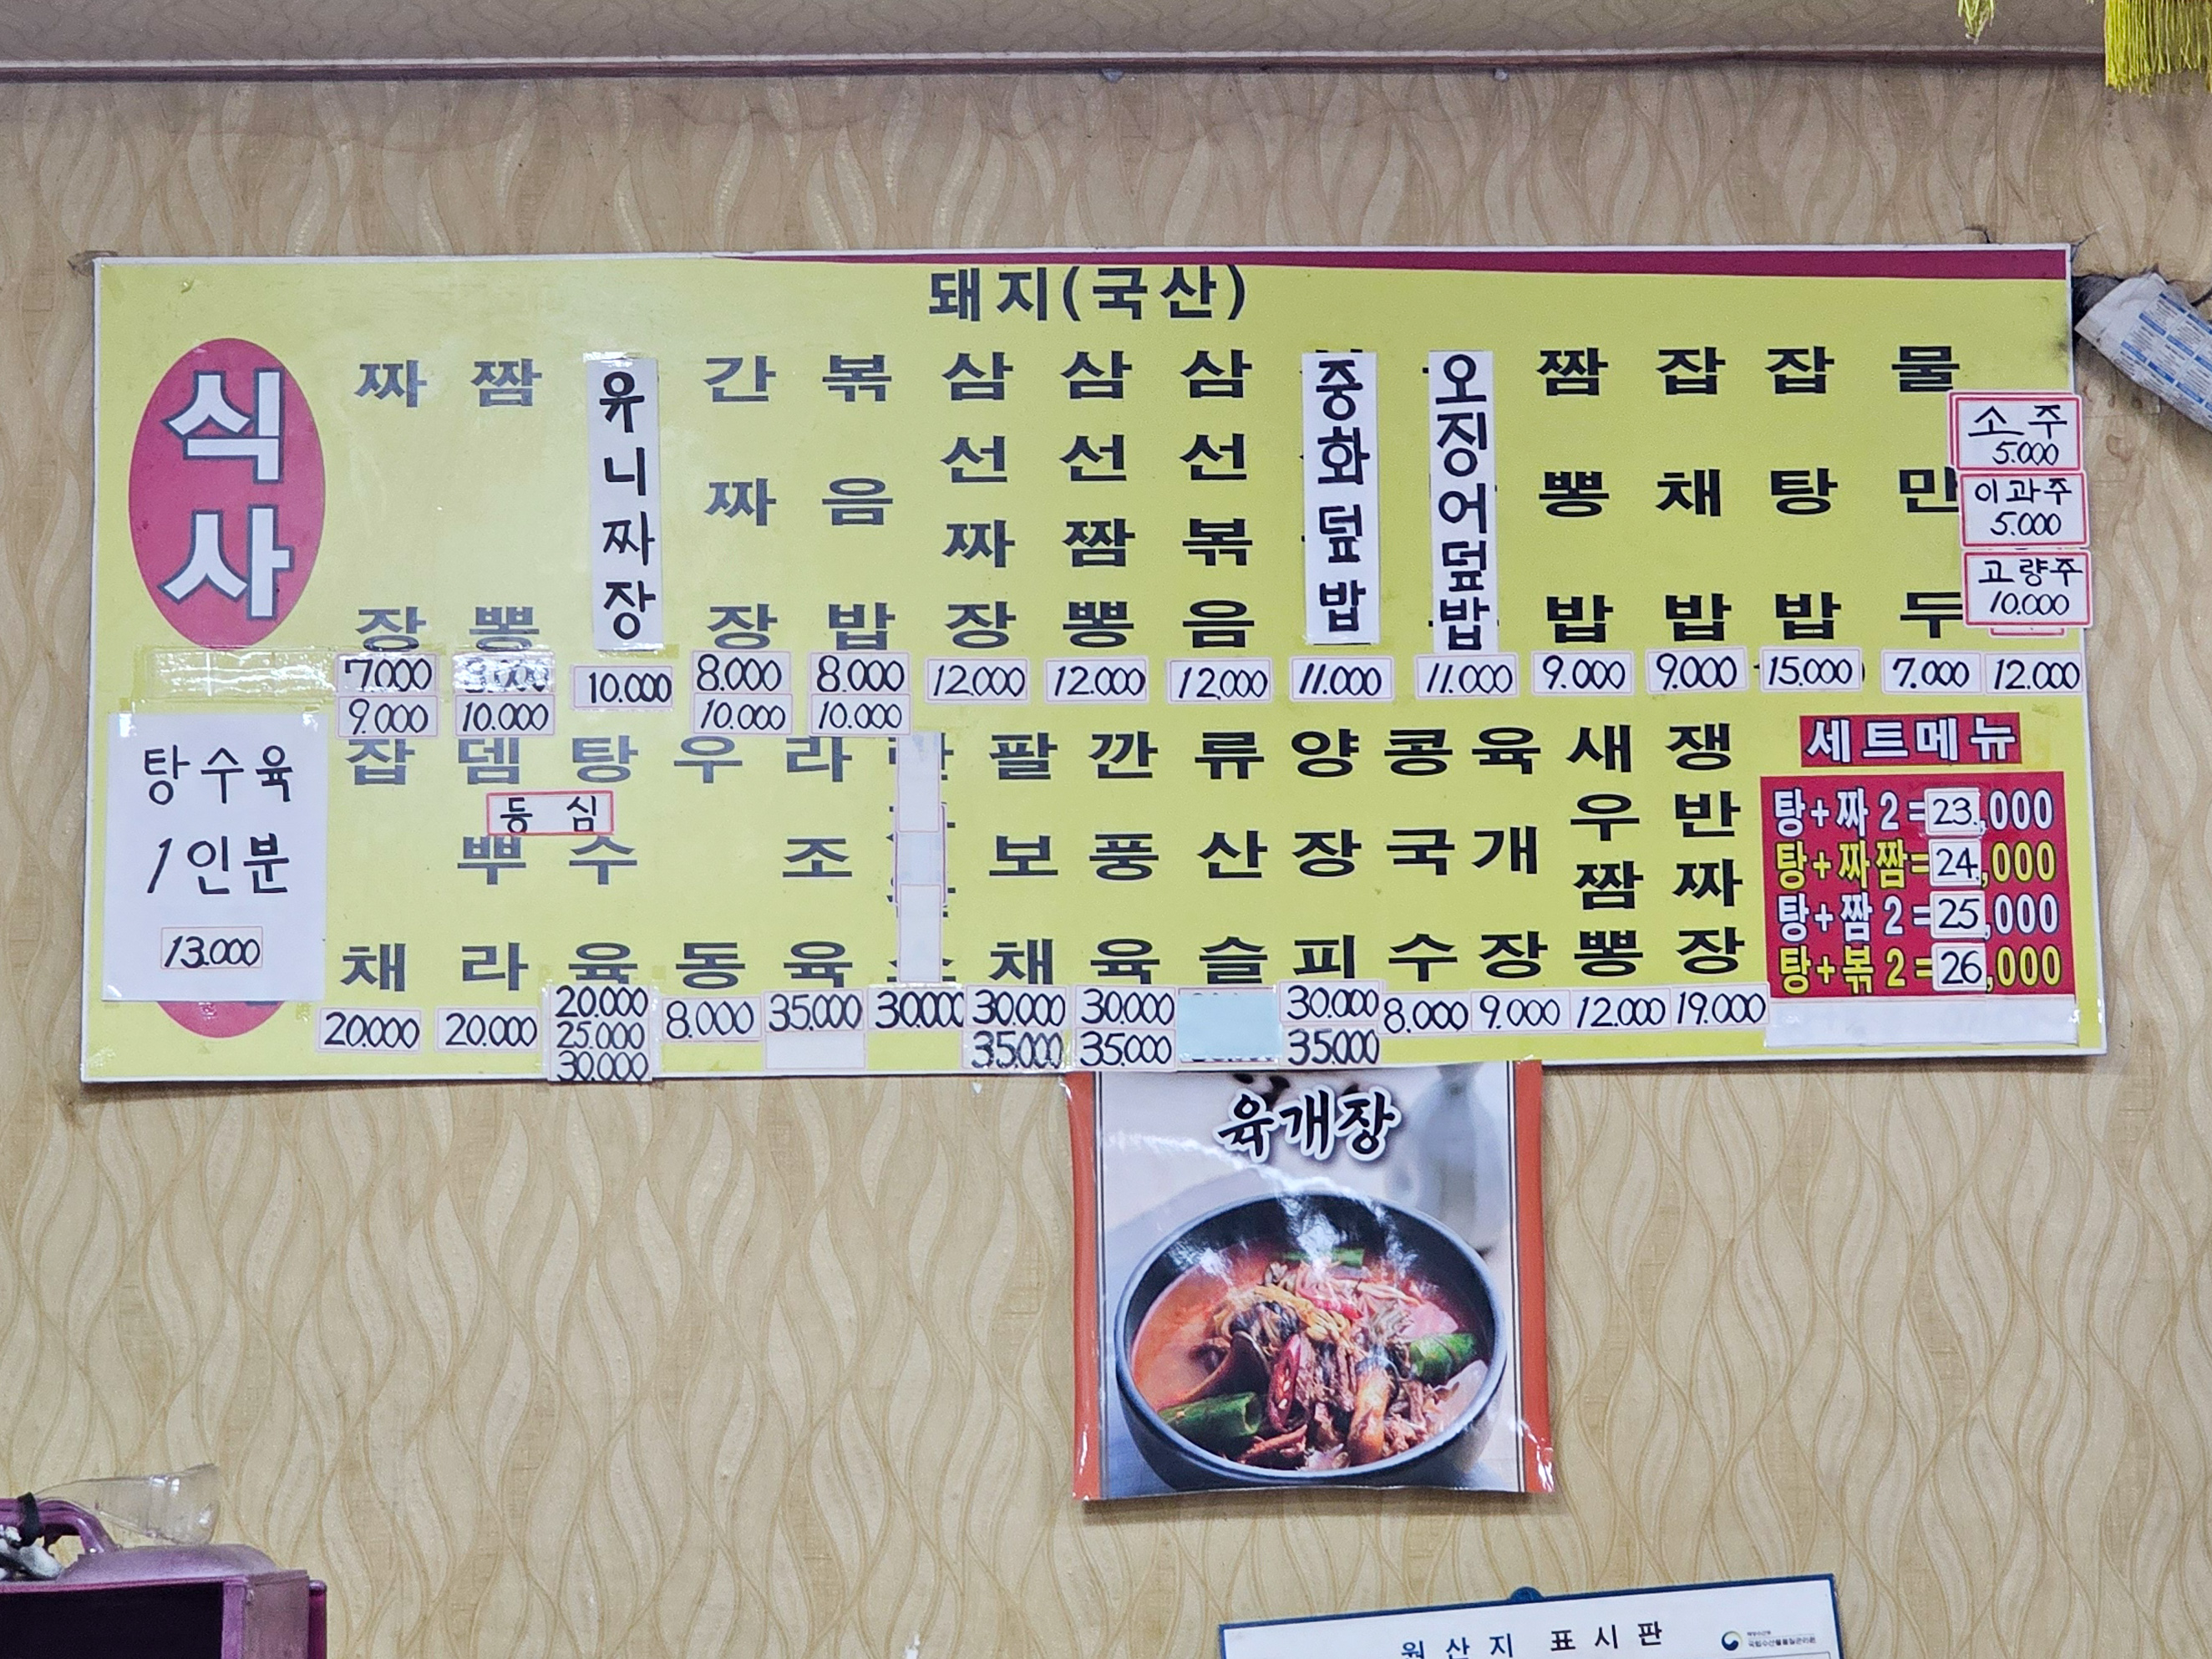 돼지(국산)
식사
짜장
7.000
9.000
짬뽕
10.000
유니짜장
10.000
간짜장
8.000
10.000
볶음밥
8.000
10.000
삼선짜장
12.000
삼선짬뽕
12.000
삼선볶음
12.000
중화덮밥
11.000
오징어덮밥
11.000
짬뽕밥
9.000
잡채밥
9.000
잡탕밥
15.000
물만두
7.000
12.000
소주
5.000
이과주
5.000
고량주
10.000
탕수육
1인분
13.000
잡채
20.000
뎀뿌라
20.000
등심
탕수육
20.000
25.000
30.000
우동
8.000
라조육
35.000
30.000
팔보채
30.000
35.000
깐풍육
30.000
35.000
류산슬
양장피
30.000
35.000
콩국수
8.000
육개장
9.000
새우짬뽕
12.000
쟁반짜장
19.000
세트메뉴
탕+짜2=23,000
탕+짜짬=24,000
탕+짬2=25,000
탕+볶2=26,000
육개장
원산지 표시판